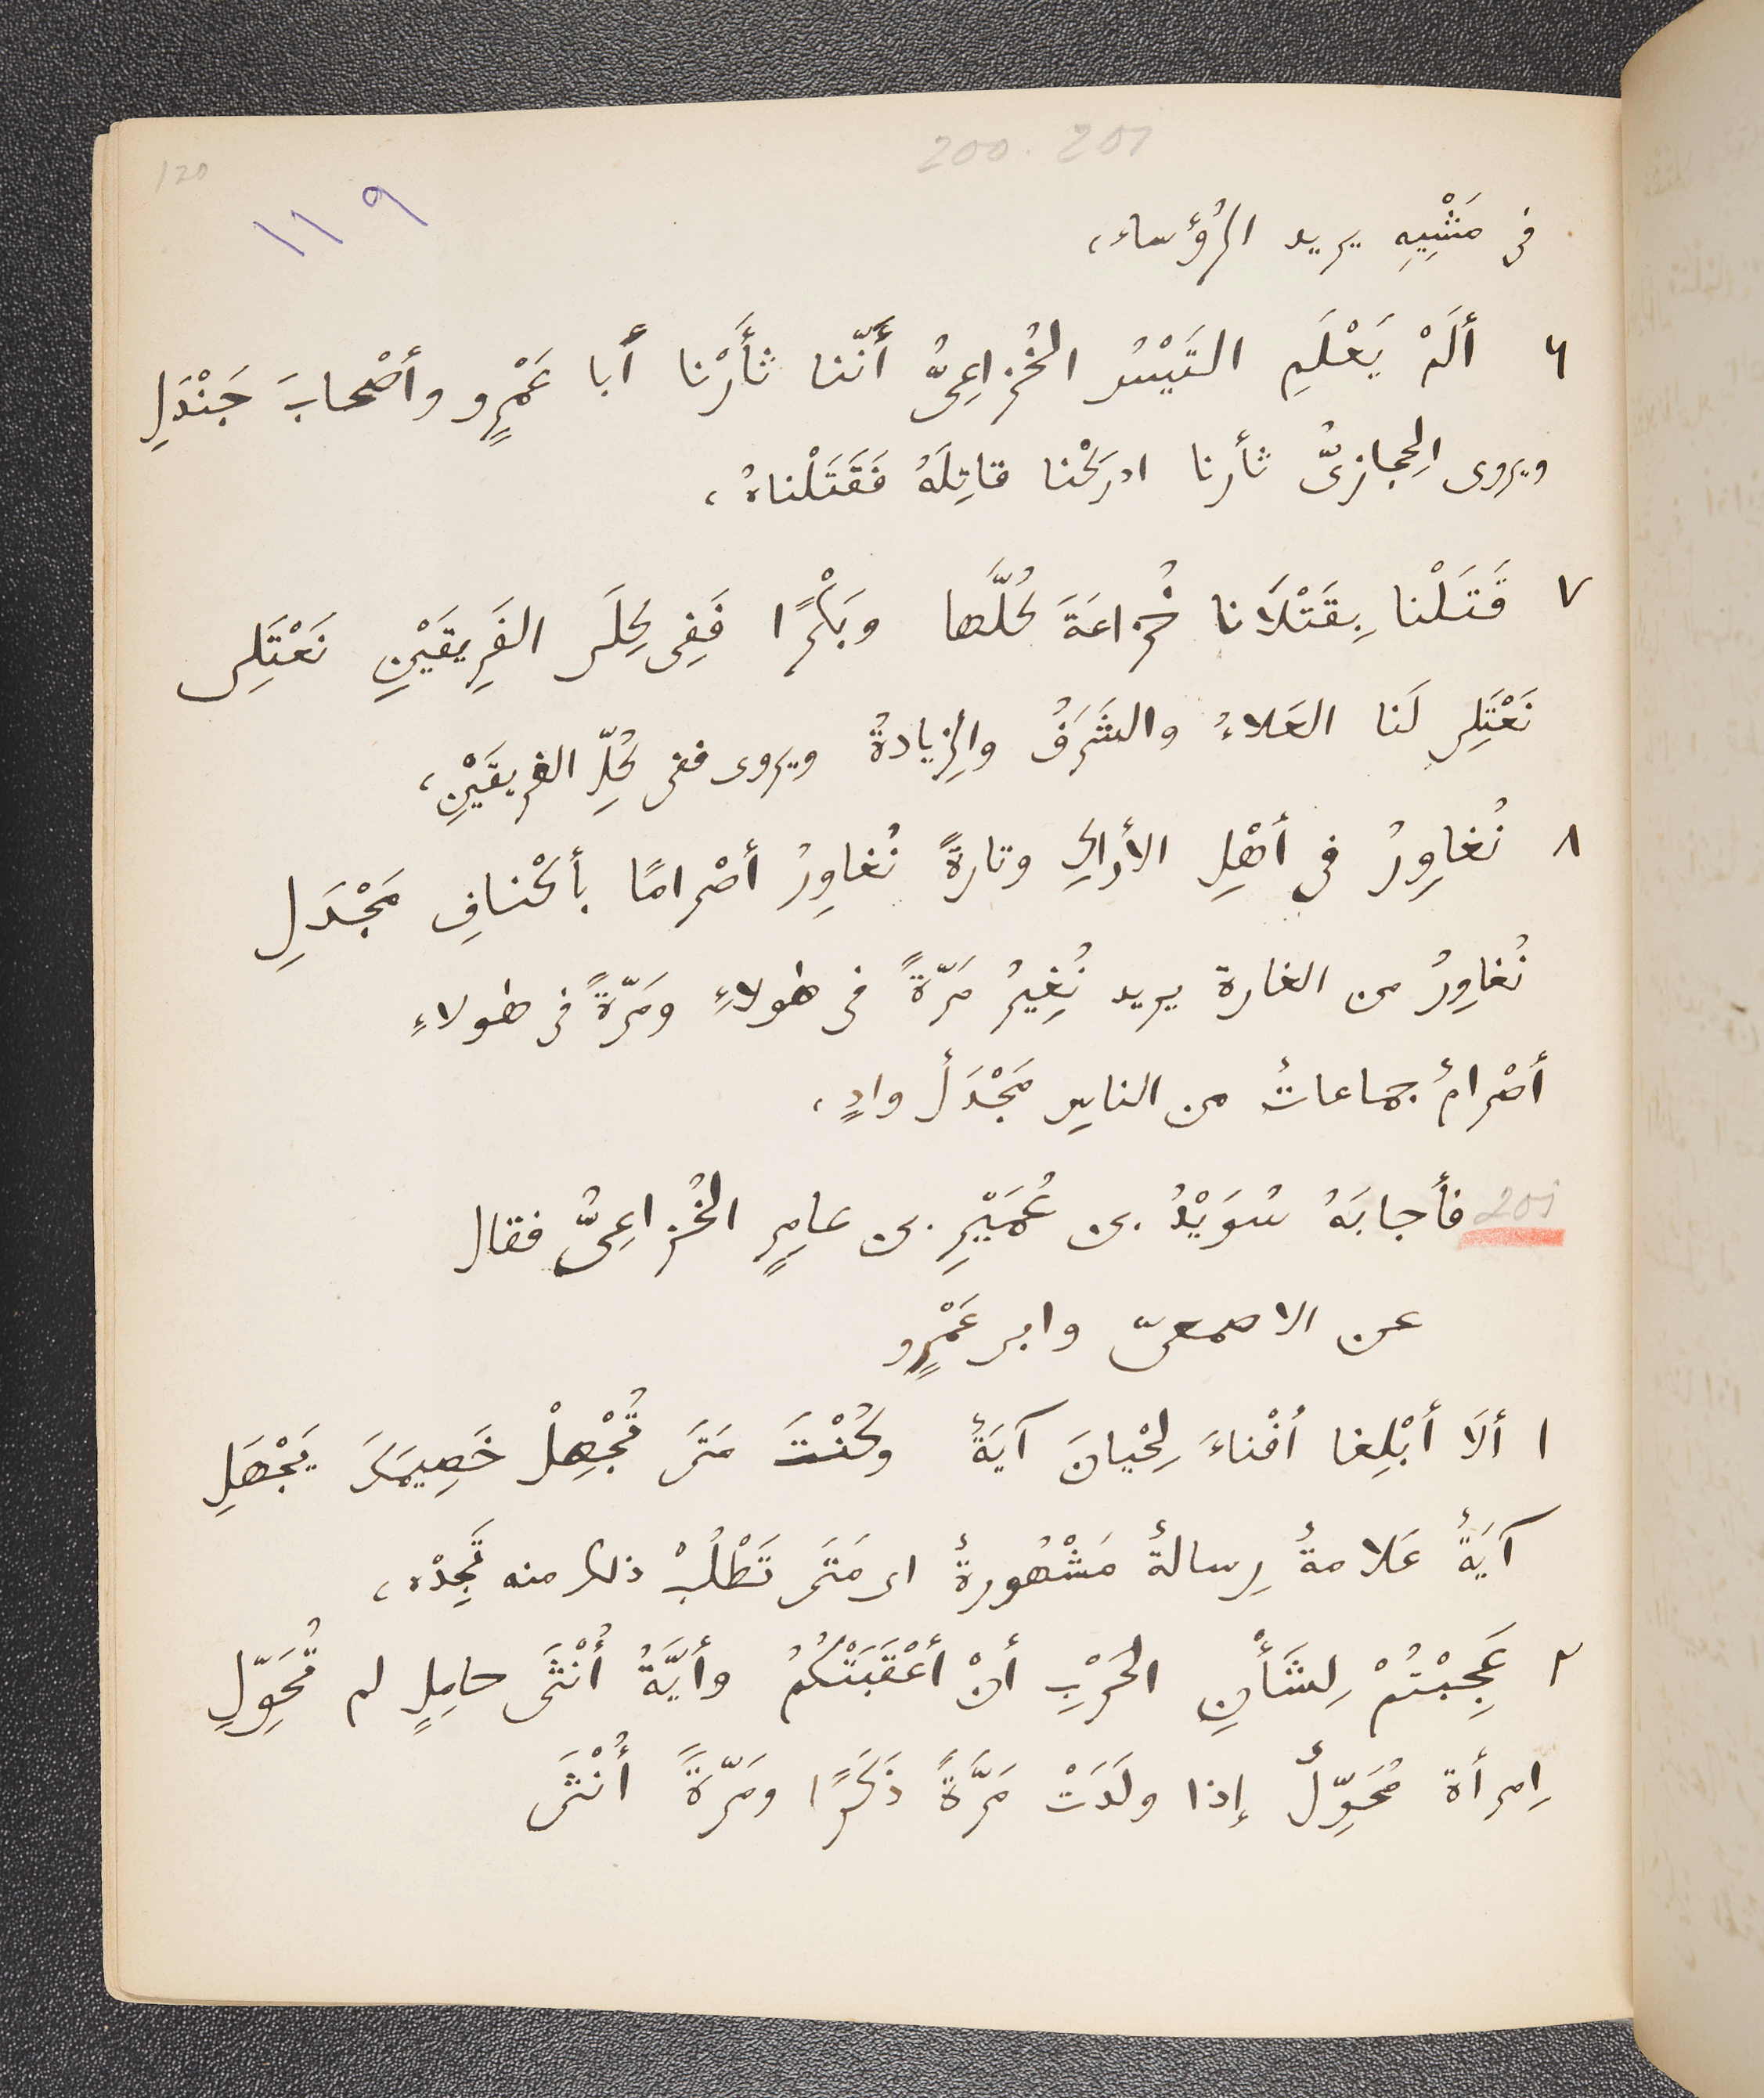 200. 201
120
١١٩
فى مَشْيِهِ يريد الرُؤساء،
٦ أَلَمْ يَعْلَمِ التَيْسُ الخُزاعِىُّ أَنَّنا ثَأَرْنا أَبا عَمْرٍو وأَصْحابَ جَنْدَلِ
ويروى الحِجازىُّ ثأرنا ادرَكْنا قاتِلَهُ فَقَتَلْناهُ،
٧ قَتَلْنا بِقَتْلَانا خُزاعَةَ كُلَّها وبَكْرًا فَفِى كِلَى الفَرِيقَيْنِ نَعْتَلِى
نَعْتَلِى لَنا العَلاءُ والشَرَفُ والزِيادةُ ويروى ففى كُلِّ الفريقَيْنِ،
٨ نُغاوِرُ فى أَهْلِ الأراكِ وتارةً نُغاوِرُ أصْرامًا بأكْنافِ مَجْدَلِ
نُغاوِرُ من الغارة يريد نُغِيرُ مَرّةً فى هولاءِ ومَرّةً فى هولاءِ
أصْرامٌ جماعاتٌ من الناسِ مَجْدَلٌ وادٍ،
201 فأجابَهُ سُوَيْدُ بن عُمَيْرِ بن عامِرٍ الخُزاعِىُّ فقال
عن الاصمعىّ وابى عَمْرٍو
١ أَلَا أَبْلِغا أفْناءَ لِحْيانَ آيَةً وكُنْتَ مَتَى تُجْهِلْ خَصِيمَكَ يَجْهَلِ
آيَةٌ عَلامةٌ رِسالةٌ مَشْهُورةٌ اى مَتَى تَطْلُبْ ذلك منه تَجِدْه،
٢ عَجِبْتُمْ لِشَأْنِ الحَرْبِ أنْ أَعْقَبَتْكُمُ وأَيَّةُ أُنْثَى حامِلٍ لم تُحَوِّلِ
اِمرأة مُحَوِّلٌ إذا ولَدَتْ مَرَّةً ذَكَرًا ومَرّةً أُنْثَى